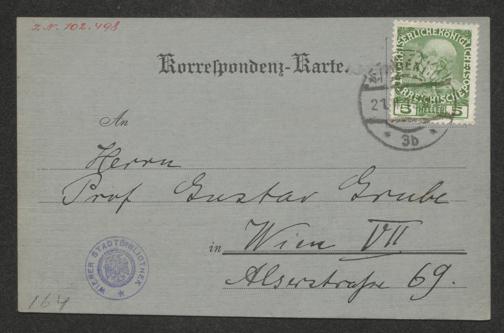 I.N. 102.498
Korrespondenz-Karte.
KAISERLICHE KÖNIGLICHE
ÖSTERREICHISCHE POST
5 HELLER 5
21.
* 3b *
An
Herrn
Prof Gustav Grube
in Wien VII
Alserstraße 69.
WIENER STADTBIBLIOTHEK
164